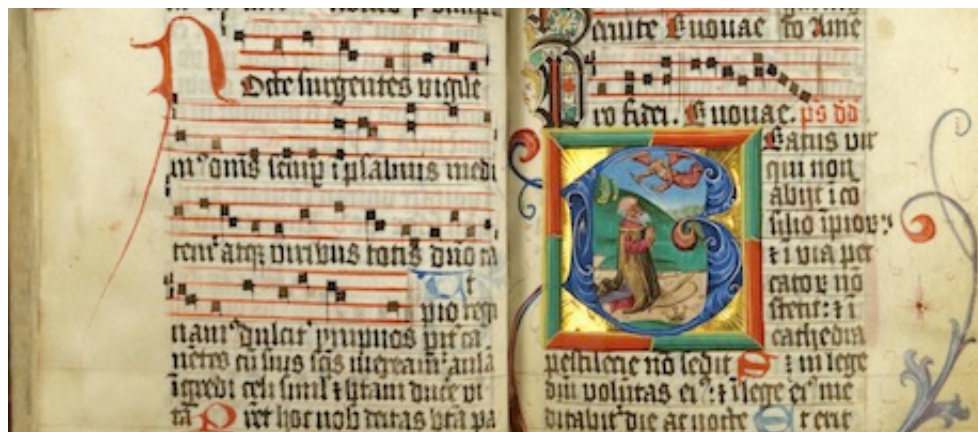 Nocte surgentes vigile
mꝰ omīs semꝑ ī psalmis medi
temʳ atqꝫ viribus totis dūo ca
Ut
pio regi
pariʳ
cū suis
īgredi celi simul ⁊ bēam duce vi
tā Pret hoc nob deitas bēa pa
Venite Euouae To Ame
Pro fidei. Euouae. ps dd
Beatus vir
qui non
abijt ī co
silio īpioꝝ
⁊ ī via pec
catoꝝ nō
stetit: ⁊ ī
cathedra
pestilēcie nō sedit S ⁊ in lege
dni volūtas eiꝰ: ⁊ ī lege eiꝰ me
ditabitʳ die ac nocte Et erit